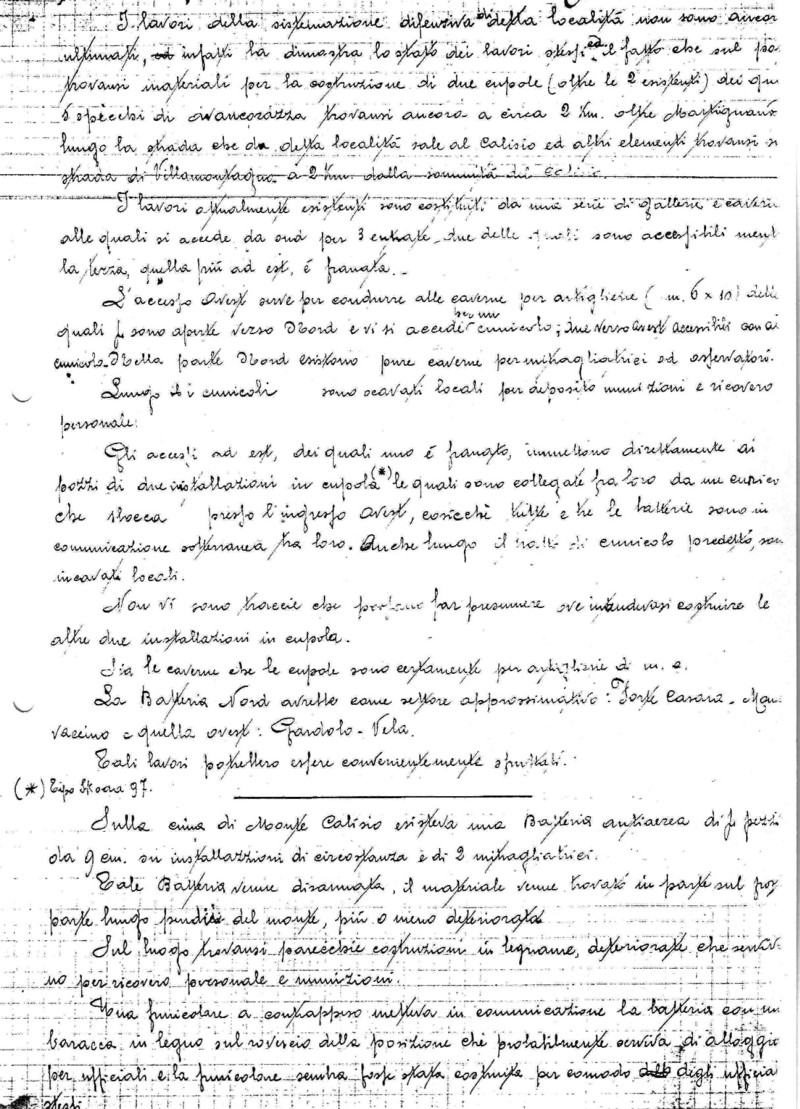 I lavori della sistemazione difensiva di detta località non sono ancor
ultimati, infatti la dimostra lo stato dei lavori stessi ed il fatto che sul po
trovansi materiali per la costruzione di due cupole (oltre le 2 esistenti) dei qu
specchi di avancorazza trovansi ancora a circa 2 Km. oltre Martignano
lungo la strada che da detta località sale al Calisio ed altri elementi trovansi s
strada di Villamontagna a 2 Km. dalla sommità del Calisio.
I lavori attualmente esistenti sono costituiti da una serie di gallerie e caver
alle quali si accede da sud per 3 entrate due delle quali sono accessibili ment
la terza, quella più ad est, é franata.
L'accesso Ovest serve per condurre alle caverne per artigliere ( m. 6 x 10) delle
quali sono aperte verso Nord e vi si accede per un cunicolo; due verso Ovest accessibili con
cunicolo. Nella parte Nord esistono pure caverne per mitragliatrici ed osservatori.
Lungo i cunicoli sono scavati locali per deposito munizioni e ricovero
personale.
Gli accessi ad est, dei quali uno é franato, immettono direttamente ai
pozzi di due installazioni in cupola (*) le quali sono collegate fra loro da un cunico
che sbocca presso l'ingresso Ovest, cosicchè tutte e tre le batterie sono in
comunicazione sotterranea tra loro. Anche lungo il tratto di cunicolo predetto, son
incavati locali.
Non vi sono traccie che possano far presumere ove intendevasi costruire le
altre due installazioni in cupola.
Sia le caverne che le cupole sono certamente per artiglierie di m. c.
La Batteria Nord avrebbe come settore approssimativo: Forte Casara - Mon
vaccino e quella ovest: Gardolo - Vela.
Tali lavori potrebbero essere convenientemente sfruttati.
(*) Tipo Skoda 97.
Sulla cima di Monte Calisio esisteva una Batteria antiaerea di pezzi
da 9 cm. su installazzioni di circostanza e di 2 mitragliatrici.
Tale Batteria venne disarmata, il materiale venne trovato in parte sul pos
parte lungo pendii del monte, più o meno deteriorata
Sul luogo trovansi parecchie costruzioni in legname, deteriorate che serviv
no per ricovero personale e munizioni.
Una funicolare a contrappeso metteva in comunicazione la batteria con un
baracca in legno sul rovescio della posizione che probabilmente serviva di alloggio
per ufficiali e la funicolare sembra fosse stata costruita per comodo degli ufficia
stessi